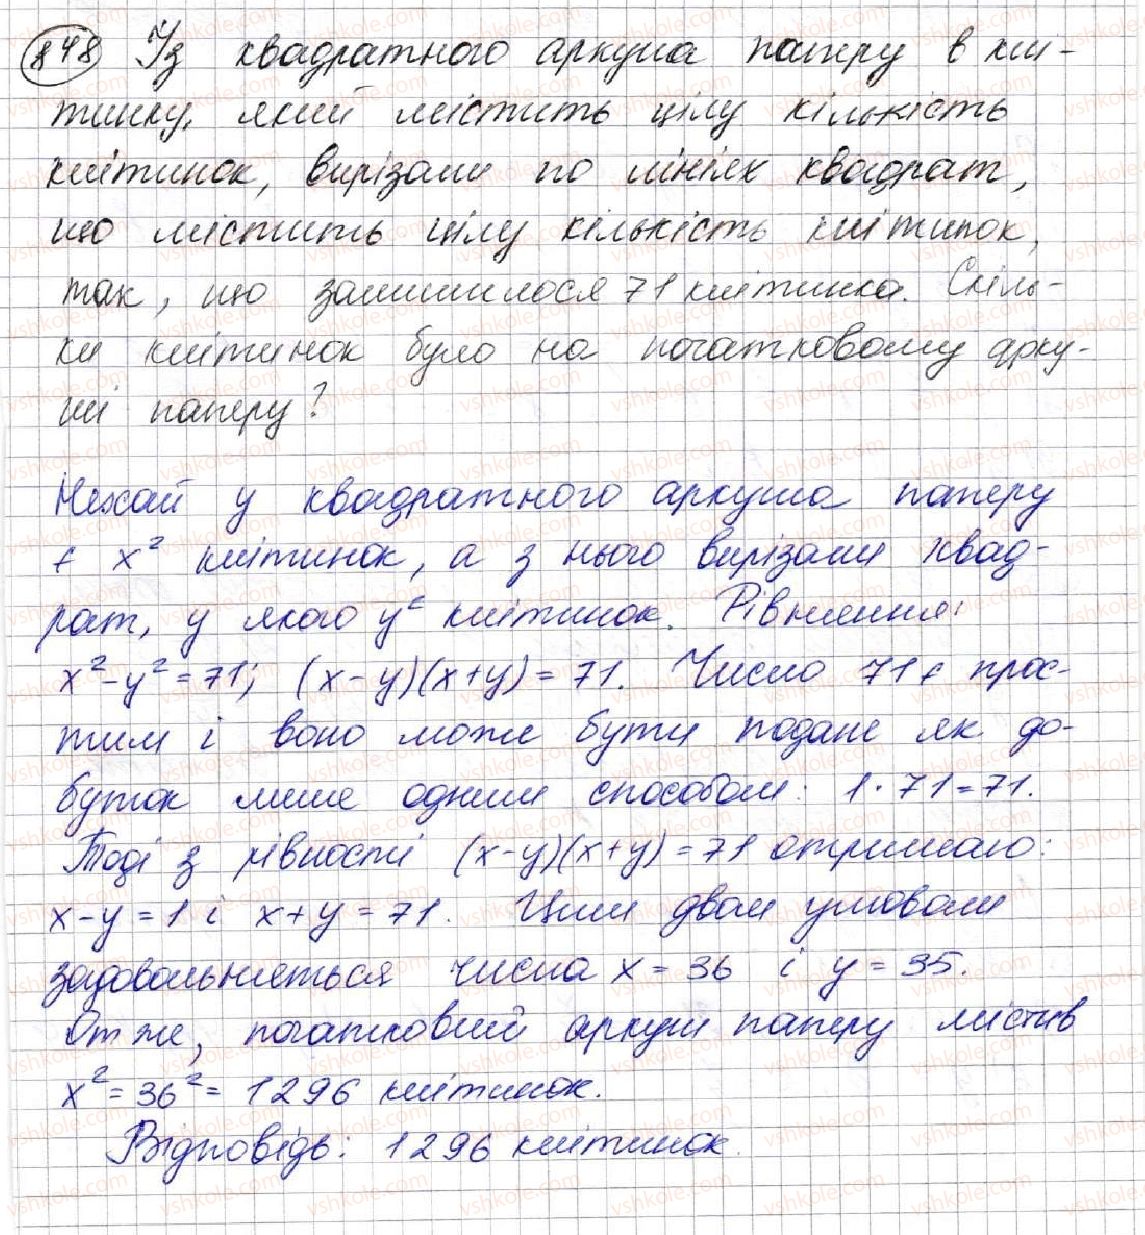 848 Із квадратного аркуша паперу вклі-
тинку, який містить цілу кількість
клітинок, вирізали по лініях квадрат,
що містить цілу кількість клітинок,
так, що залишилося 71 клітинка. Скіль-
ки клітинок було на початковому арку-
ші паперу?
Нехай у квадратного аркуша паперу
є x² клітинок, а з нього вирізали квад-
рат, у якого y² клітинок. Рівняння:
x² - y² = 71; (x - y)(x + y) = 71. Число 71 є прос-
тим і воно може бути подане як до-
буток лише одним способом: 1 · 71 = 71.
Тоді з рівності (x - y)(x + y) = 71 отримаю:
x - y = 1 і x + y = 71. Цим двом умовам
задовольняється числа x = 36 і y = 35.
Отже, початковий аркуш паперу містив
x² = 36² = 1296 клітинок.
Відповідь: 1296 клітинок.